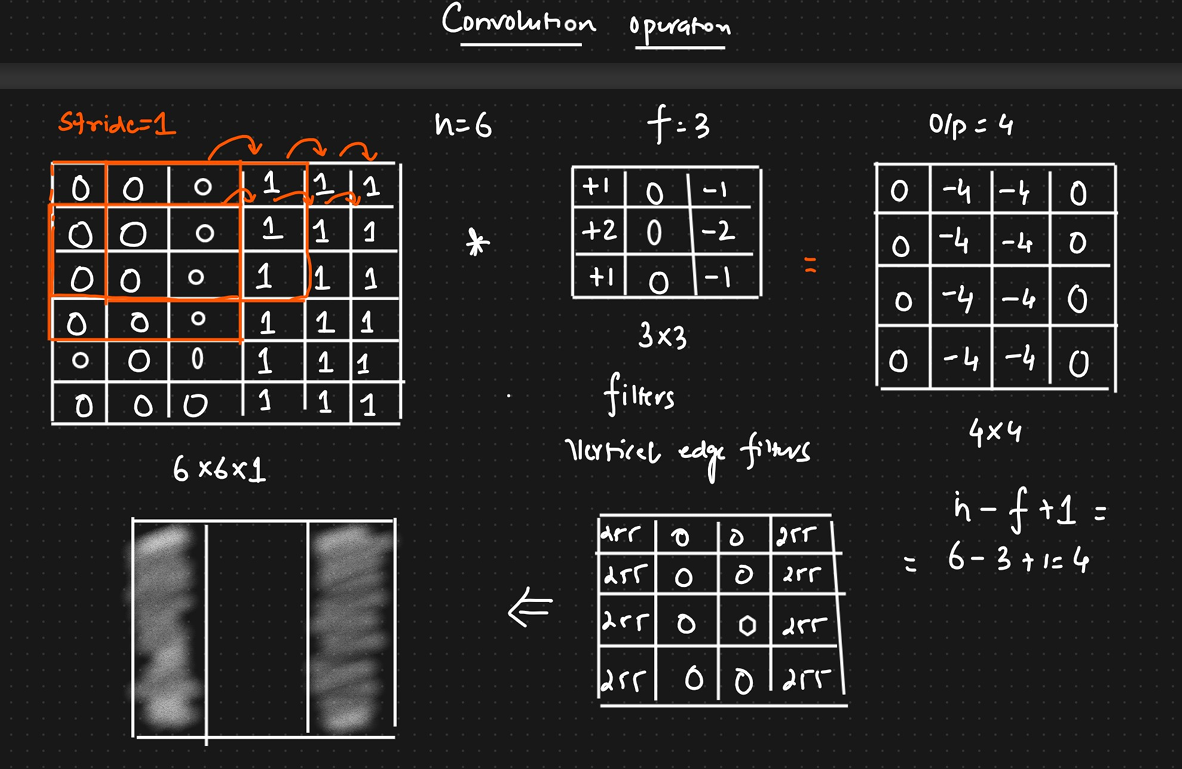 Convolution operation
Stride=1
n=6
f=3
O/p = 4
0 0 0 1 1 1
0 0 0 1 1 1
0 0 0 1 1 1
0 0 0 1 1 1
0 0 0 1 1 1
0 0 0 1 1 1
6×6×1
*
+1 0 -1
+2 0 -2
+1 0 -1
3×3
filters
Vertical edge filters
=
0 -4 -4 0
0 -4 -4 0
0 -4 -4 0
0 -4 -4 0
4×4
n - f + 1 =
= 6 - 3 + 1 = 4
255 0 0 255
255 0 0 255
255 0 0 255
255 0 0 255
⇐